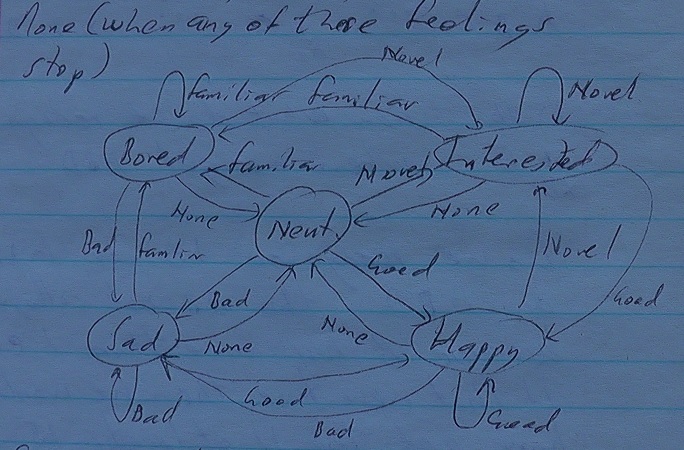 None (when any of these feelings
stop)
Novel
familiar familiar Novel
Bored Interested
familiar Novel
None None
Neut.
Bad familiar Novel
Good
Bad Good
Sad None None Happy
Good
Bad Bad Good